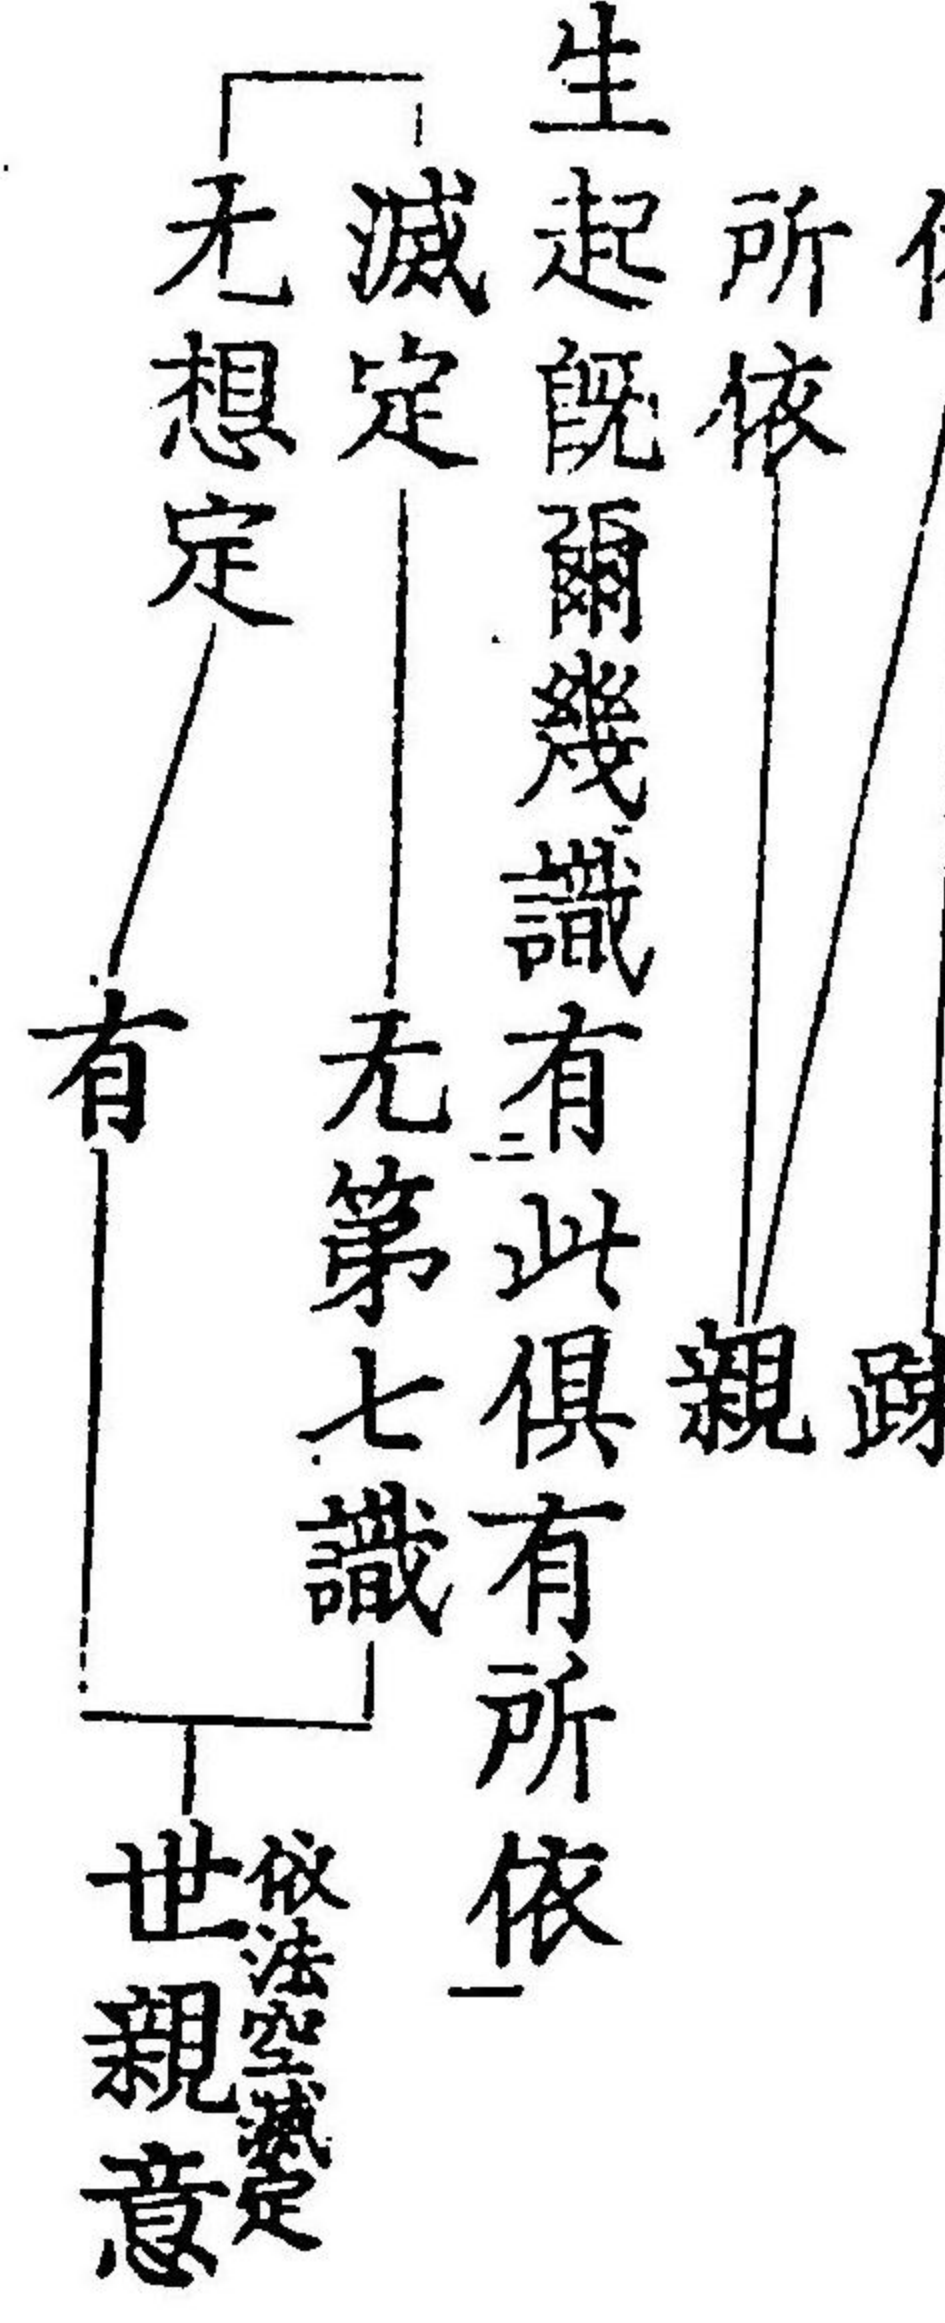 疎
所依 親
生起既爾幾識有二此俱有所依一
滅定 无第七識
无想定 有
依法空滅定
世親意